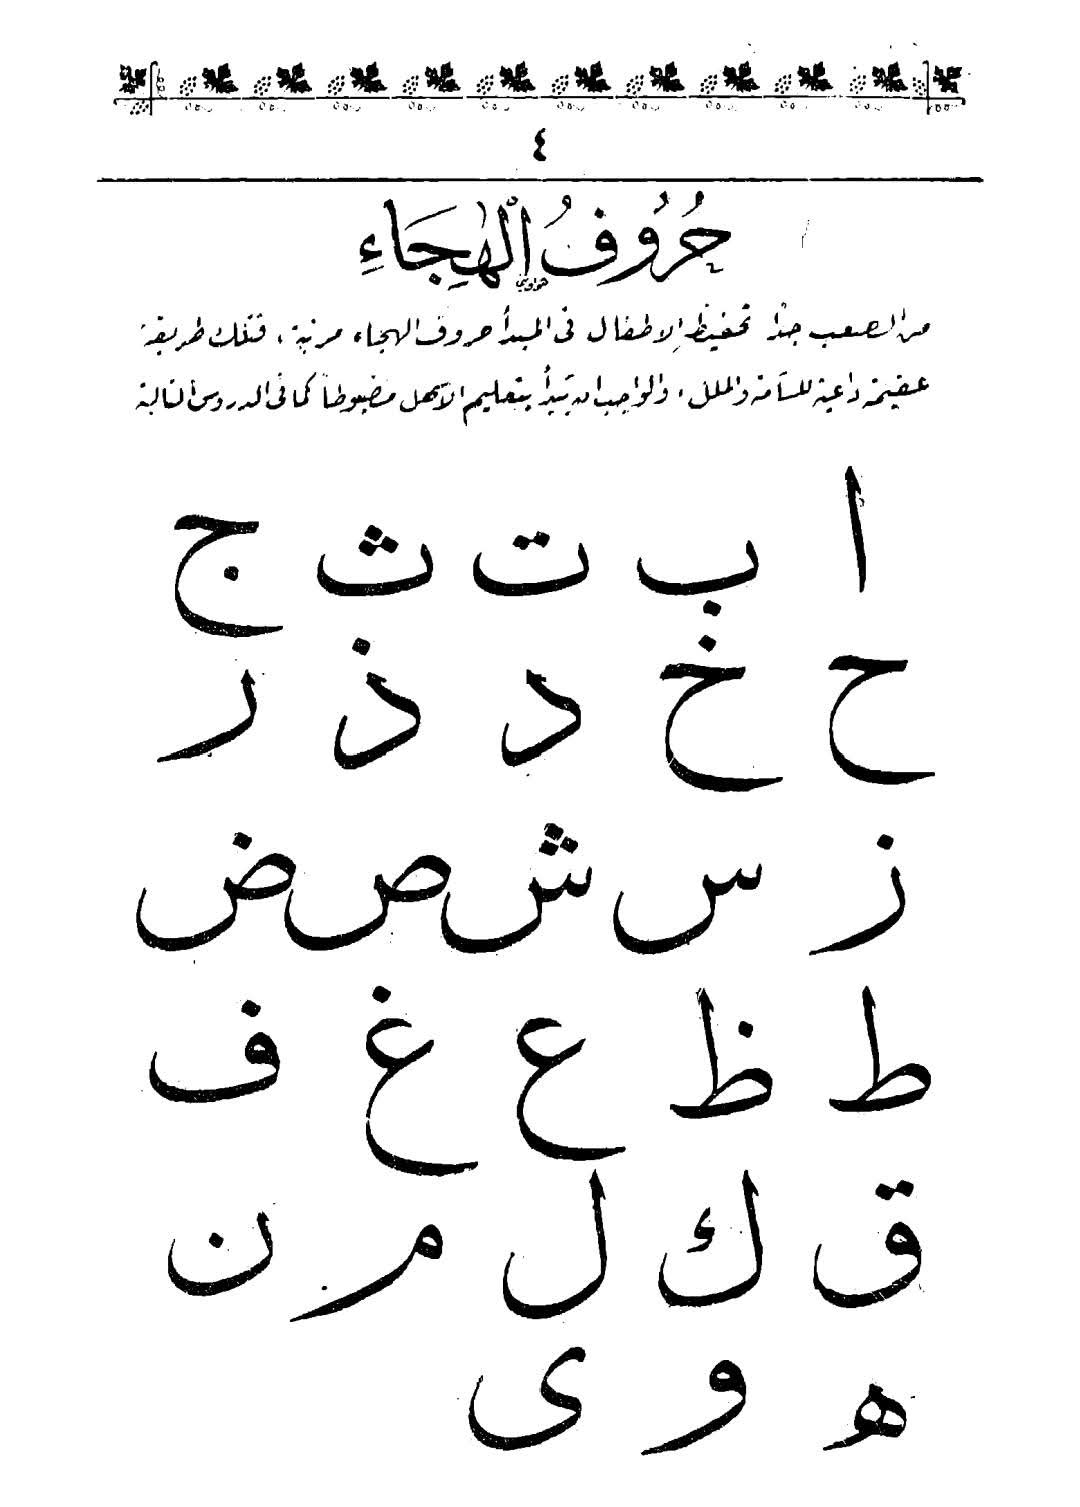 ٤
حُرُوفُ الْهِجَاءِ
هواويني
من الصعب جدًّا تحفيظ الاطفال فى المبدأ حروف الهجاء مرتبة، فتلك طريقة
عقيمة داعية للسآمة والملل، والواجب ان يَبتدأ بتعليم الاسهل مضبوطاً كما فى الدروس التالية
ا ب ت ث ج
ح خ د ذ ر
ز س ش ص ض
ط ظ ع غ ف
ق ك ل م ن
ه و ى